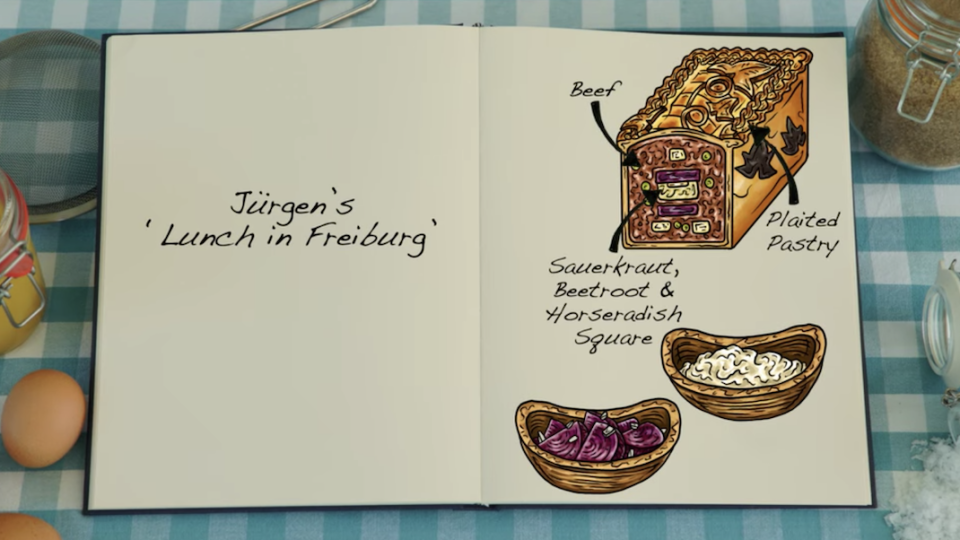 Jürgen's
'Lunch in Freiburg'
Beef
Plaited
Pastry
Sauerkraut,
Beetroot &
Horseradish
Square